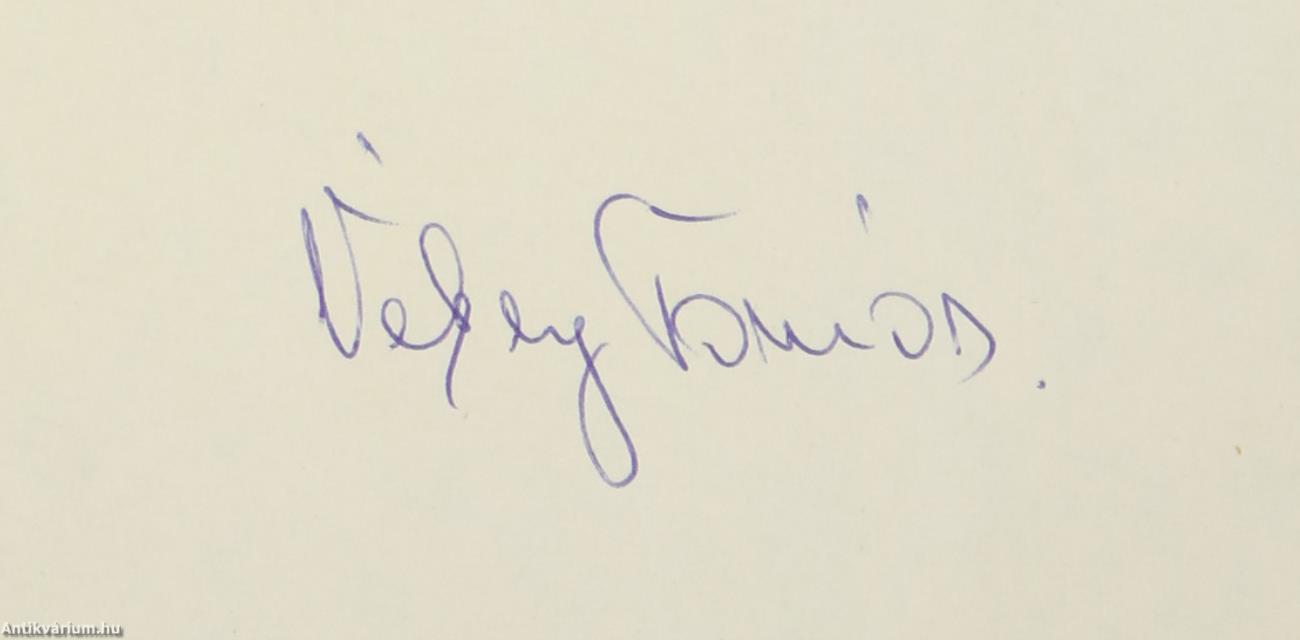 Vékey Tamás.
Antikvárium.hu